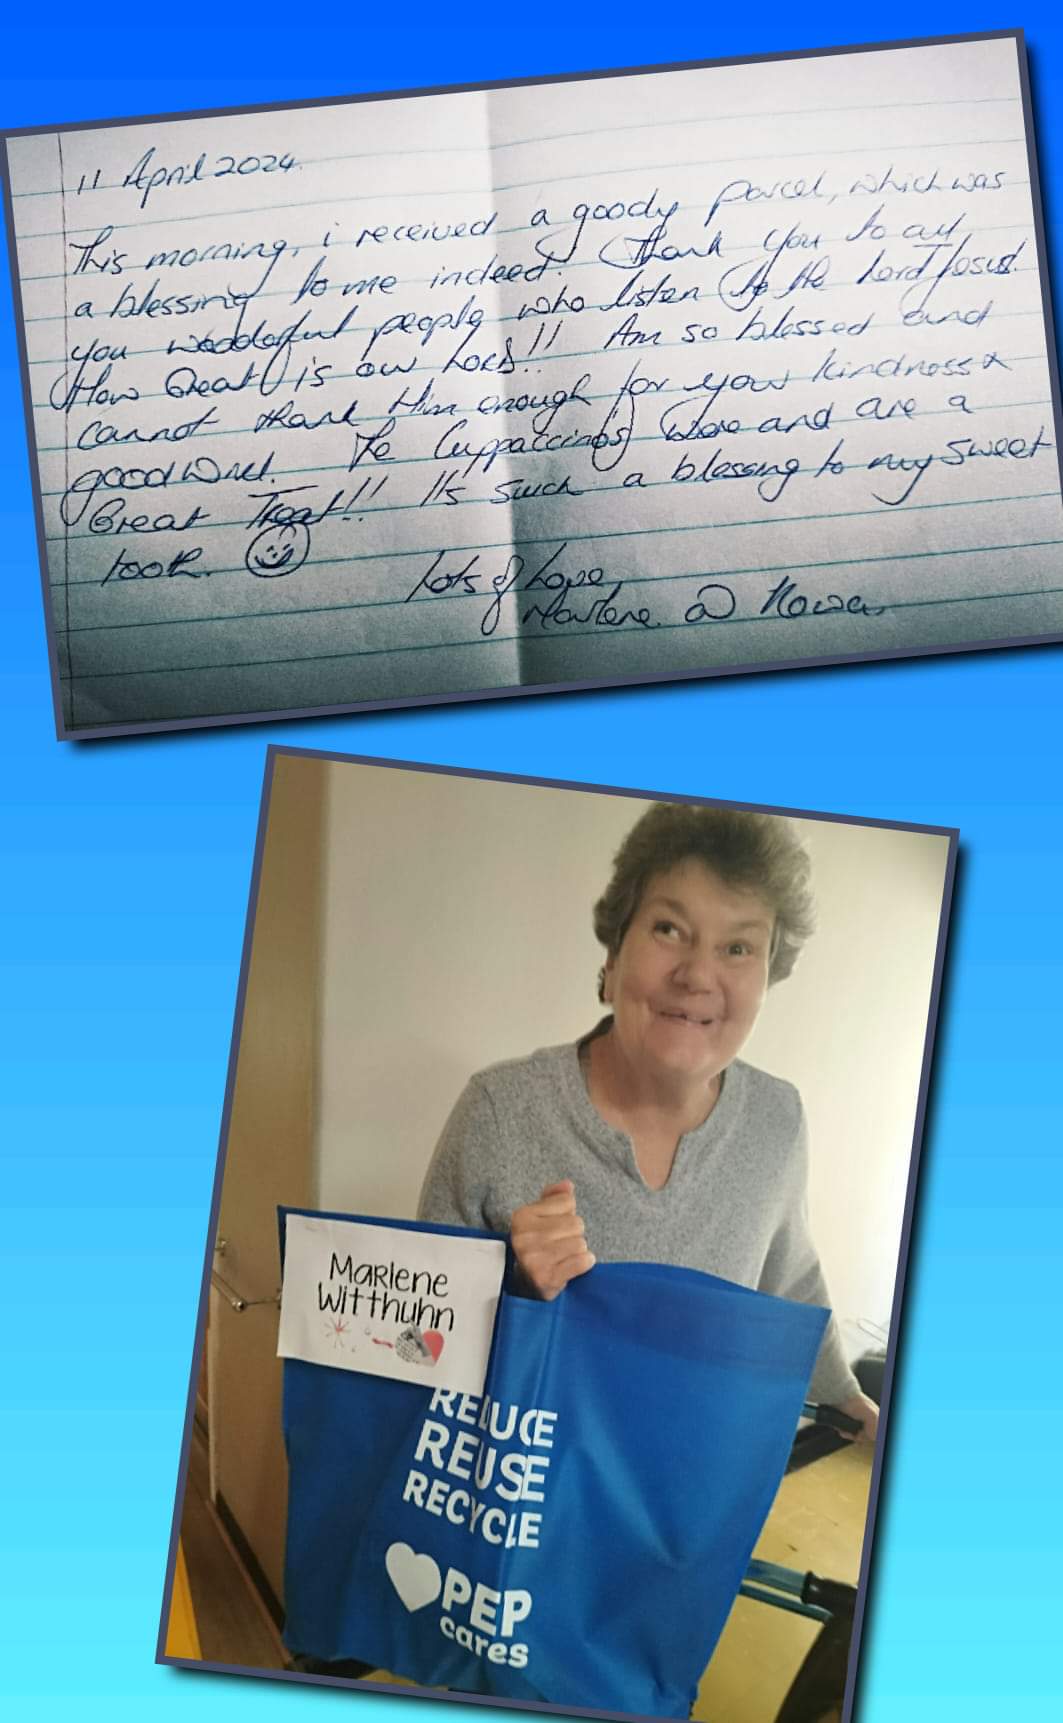 11 April 2024.
This morning, i received a goody parcel, which was
a blessing to me indeed! Thank you to all
you wodderful people who listen to the Lord Jesus!
How Great is our Lord!! Am so blessed and
cannot thank Him enough for your kindness &
goodwill. The Cuppaccinos were and are a
Great Treat!! It's such a blessing to my sweet
tooth.
Lots of Love,
Marlene. @ Nowa.
Marlene
Witthuhn
REDUCE
REUSE
RECYCLE
PEP
cares